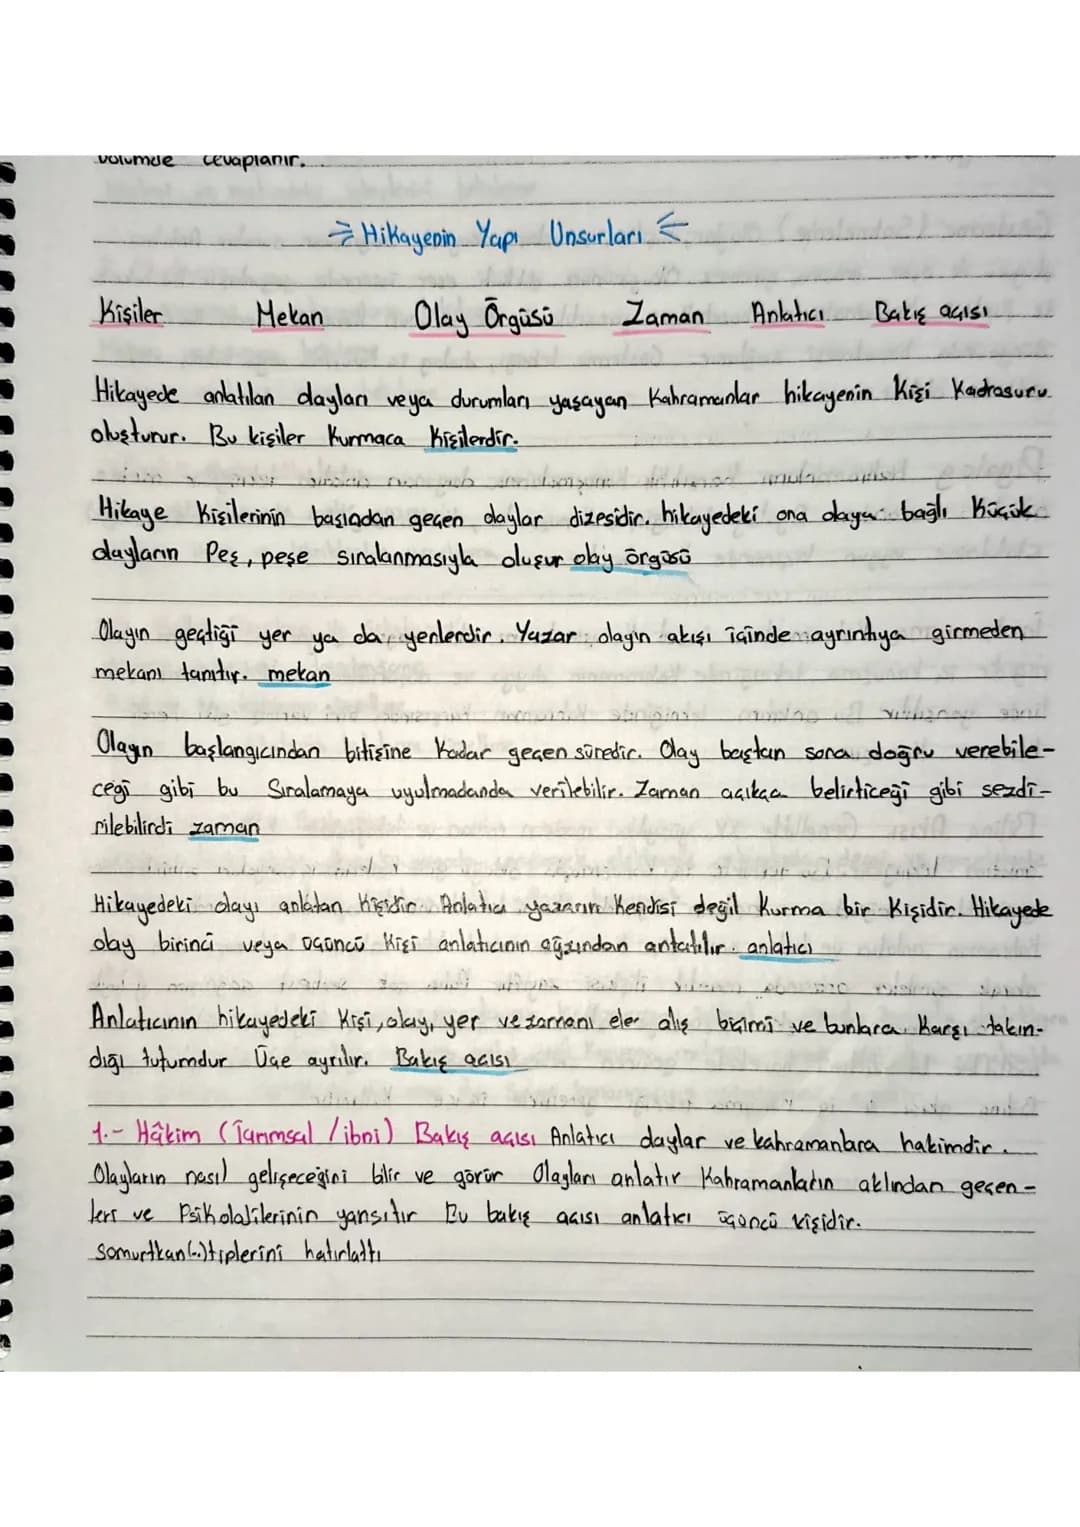 bölümde cevaplanır.
⇒ Hikayenin Yapı Unsurları ⇐
Kişiler Mekan Olay Örgüsü Zaman Anlatıcı Bakış açısı
Hikayede anlatılan olayları veya durumları yaşayan Kahramanlar hikayenin Kişi Kadrosunu
oluşturur. Bu kişiler Kurmaca Kişilerdir.
Hikaye Kişilerinin basından geçen olaylar dizesidir. hikayedeki ana olaya bağlı Küçük
olayların Peş, peşe sıralanmasıyla oluşur olay örgüsü
Olayın geçtiği yer ya da, yerlerdir. Yazar olayın akışı içinde ayrıntıya girmeden
mekanı tanıtır. mekan
Olayın başlangıcından bitişine Kadar geçen süredir. Olay baştan sona doğru verebile-
ceği gibi bu Sıralamaya uyulmadanda verilebilir. Zaman açıkça belirticeği gibi sezdi-
rilebilirdi zaman
Hikayedeki olayı anlatan Kişidir. Anlatıcı yazarın Kendisi değil Kurma bir Kişidir. Hikayede
olay birinci veya üçüncü Kişi anlatıcının ağzından anlatılır. anlatıcı
Anlatıcının hikayedeki Kişi, olay, yer ve zamanı ele alış biçimi ve bunlara Karşı takın-
dığı tutumdur Üçe ayrılır. Bakış açısı
1.- Hâkim (Tanrısal / ibni) Bakış açısı Anlatıcı olaylar ve kahramanlara hakimdir.
Olayların nasıl gelişeceğini bilir ve görür Olayları anlatır Kahramanların aklından geçen-
leri ve Psikolojilerinin yansıtır Bu bakış açısı anlatıcı üçüncü kişidir.
Somurtkan(..)tiplerini hatırlattı